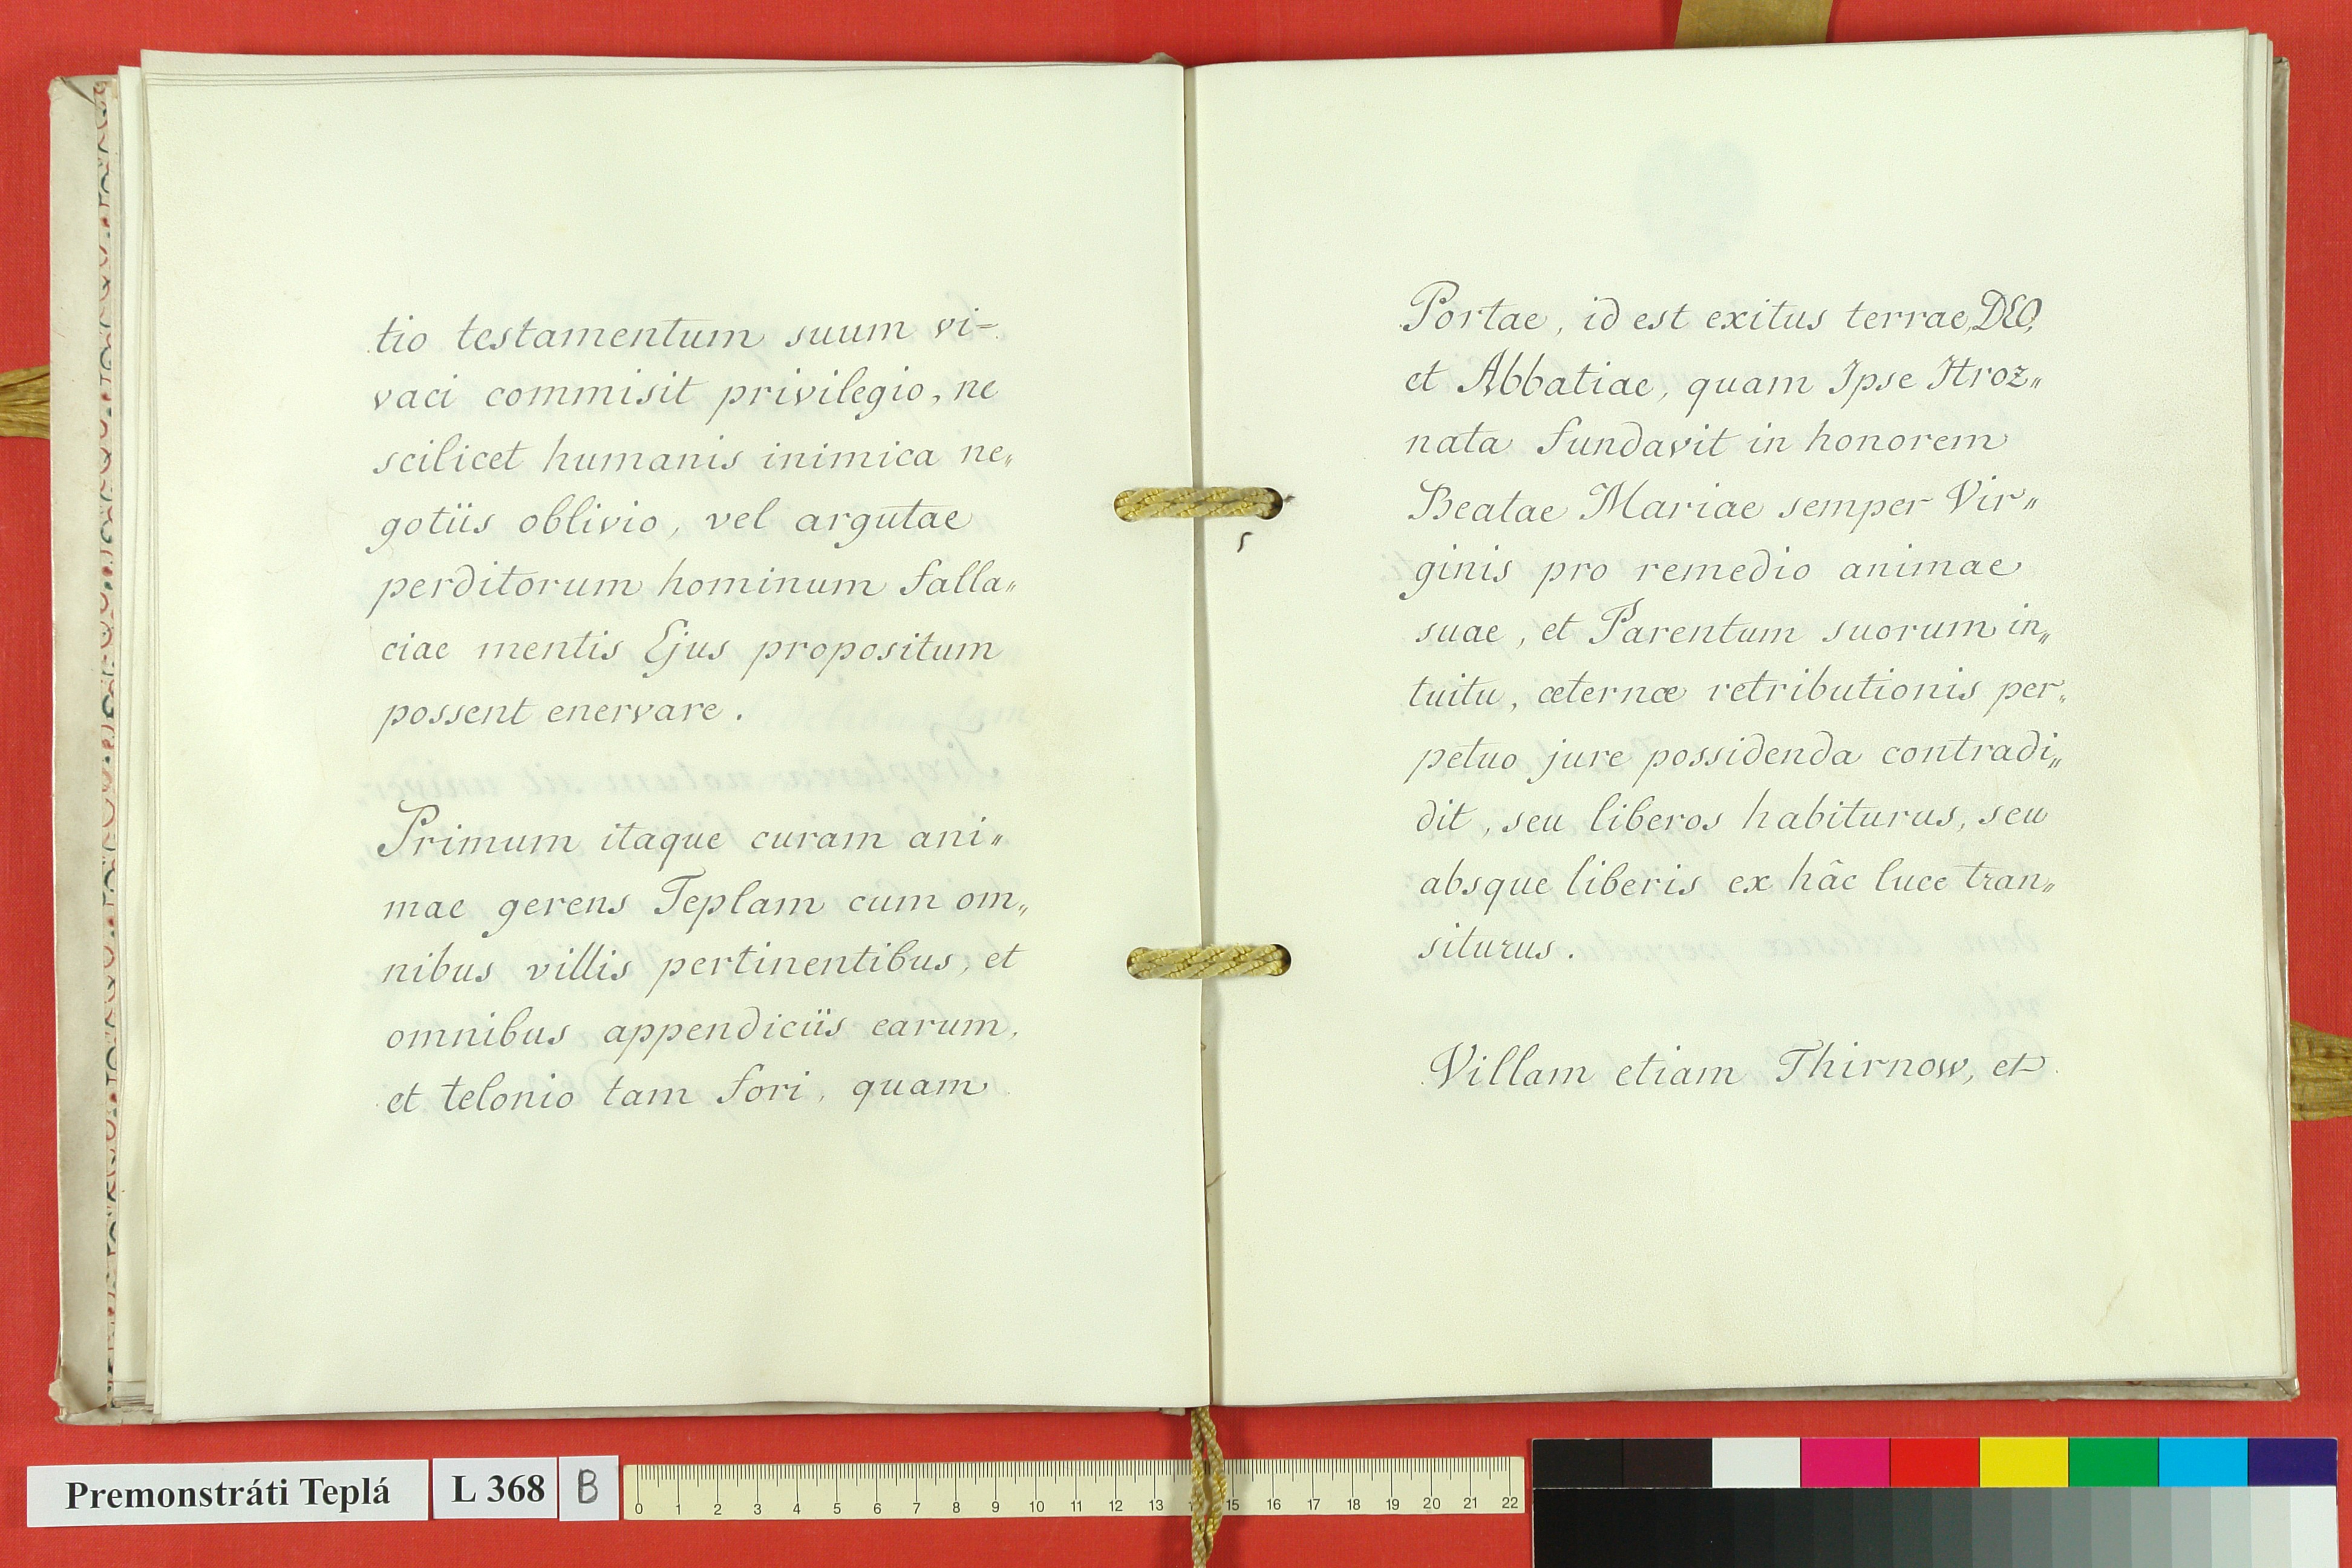 tio testamentum suum vi=
vaci commisit privilegio, ne
scilicet humanis inimica ne„
gotiis oblivio, vel argutae
perditorum hominum falla„
ciae mentis Ejus propositum
possent enervare.
Primum itaque curam ani„
mae gerens Teplam cum om„
nibus villis pertinentibus, et
omnibus appendiciis earum,
et telonio tam fori, quam
Portae, id est exitus terrae, DEO,
et Abbatiae, quam Ipse Hroz„
nata fundavit in honorem
Beatae Mariae semper Vir„
ginis pro remedio animae
suae, et Parentum suorum in„
tuitu, æternæ retributionis per„
petuo jure possidenda contradi„
dit, seu liberos habiturus, seu
absque liberis ex hâc luce tran„
siturus.
Villam etiam Thirnow, et
Premonstráti Teplá L 368 B
0 1 2 3 4 5 6 7 8 9 10 11 12 13 15 16 17 18 19 20 21 22